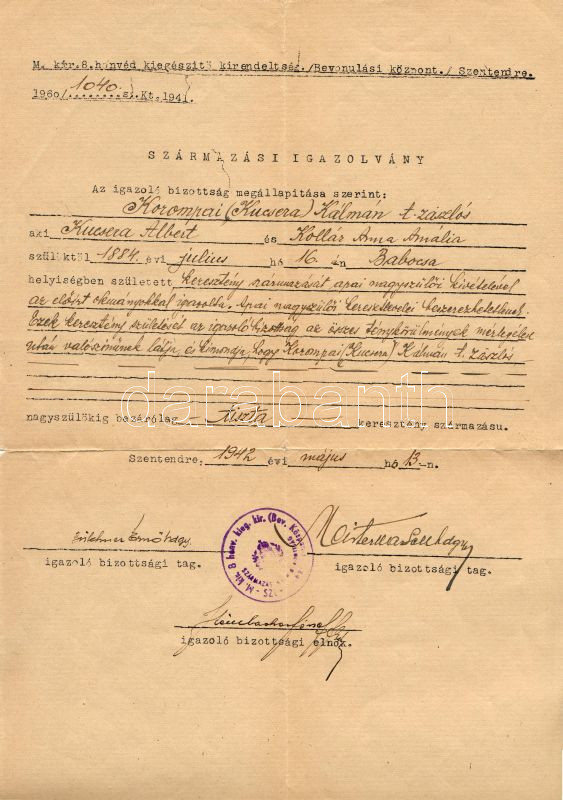 M. kir.8.honvéd kiegészitő kirendeltség./Bevonulási központ./ Szentendre.
1960/1040 s.Kt.1941.
SZÁRMAZÁSI IGAZOLVÁNY
Az igazoló bizottság megállapitása szerint:
Korompai (Kucsera) Kálmán t. zászlós
aki Kucsera Albert és Kollár Anna Amália
szülőktől 1884. évi július hó 16-án Babocsa
helyiségben született keresztény származását apai nagyszülői kivételével
az előirt okmányokkal igazolta. Apai nagyszülői keresztlevelei beszerezhetetlenek.
Ezek keresztény születését az igazoló bizottság az összes ténykörülmények mérlegelése
után valószinünek látja, és kimondja, hogy Korompai (Kucsera) Kálmán t. zászlós
darabanth
nagyszülőkig bezárólag tiszta keresztény származásu.
Szentendre, 1942 évi május hó 13-n.
igazoló bizottsági tag.
igazoló bizottsági tag.
M. kir. 8 honv. kieg. kir. (Bev. Közp.)
igazoló bizottsági elnök.